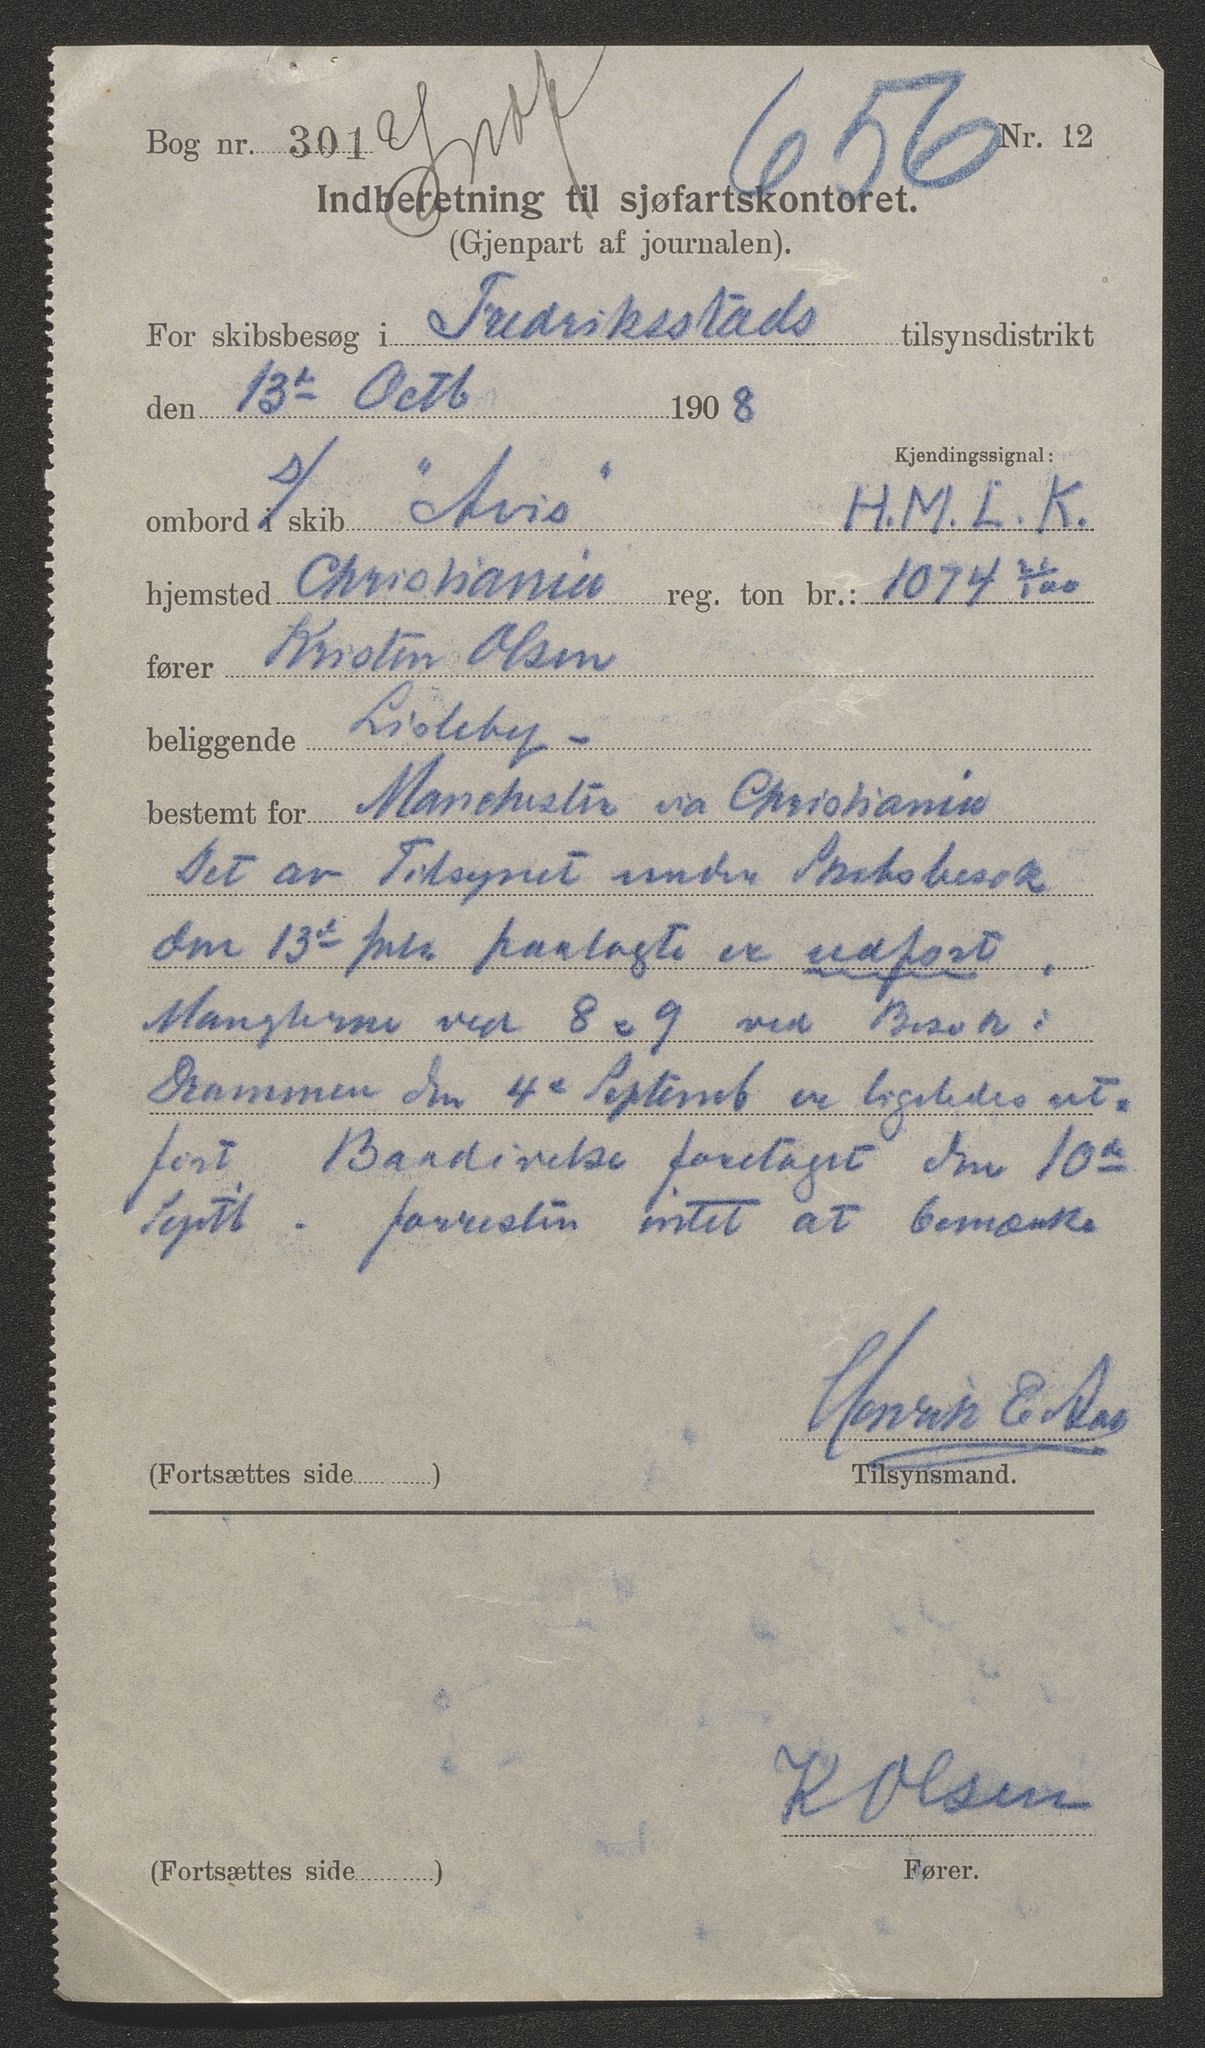 656
Bog nr. 301 Nr. 12
Indberetning til sjøfartskontoret.
(Gjenpart af journalen).
For skibsbesøg i Fredriksstads tilsynsdistrikt
den 13de Octb 1908
Kjendingssignal:
ombord i s/ skib "Avis" H.M.L.K.
hjemsted Christiania reg. ton br.: 1074
fører Kristen Olsen
beliggende Lisleby -
bestemt for Manchester via Christiania
Det av Tilsynet under Skibsbesøk
den 13de paalagte er udført.
Manglerne ved 8 & 9 ved Besøk i
Drammen den 4de Septemb er ligeledes ut-
ført. Baadøvelse foretaget den 10de
Septb. forresten intet at bemærke
Henrik E. Aas
(Fortsættes side ) Tilsynsmand.
K Olsen
(Fortsættes side ) Fører.